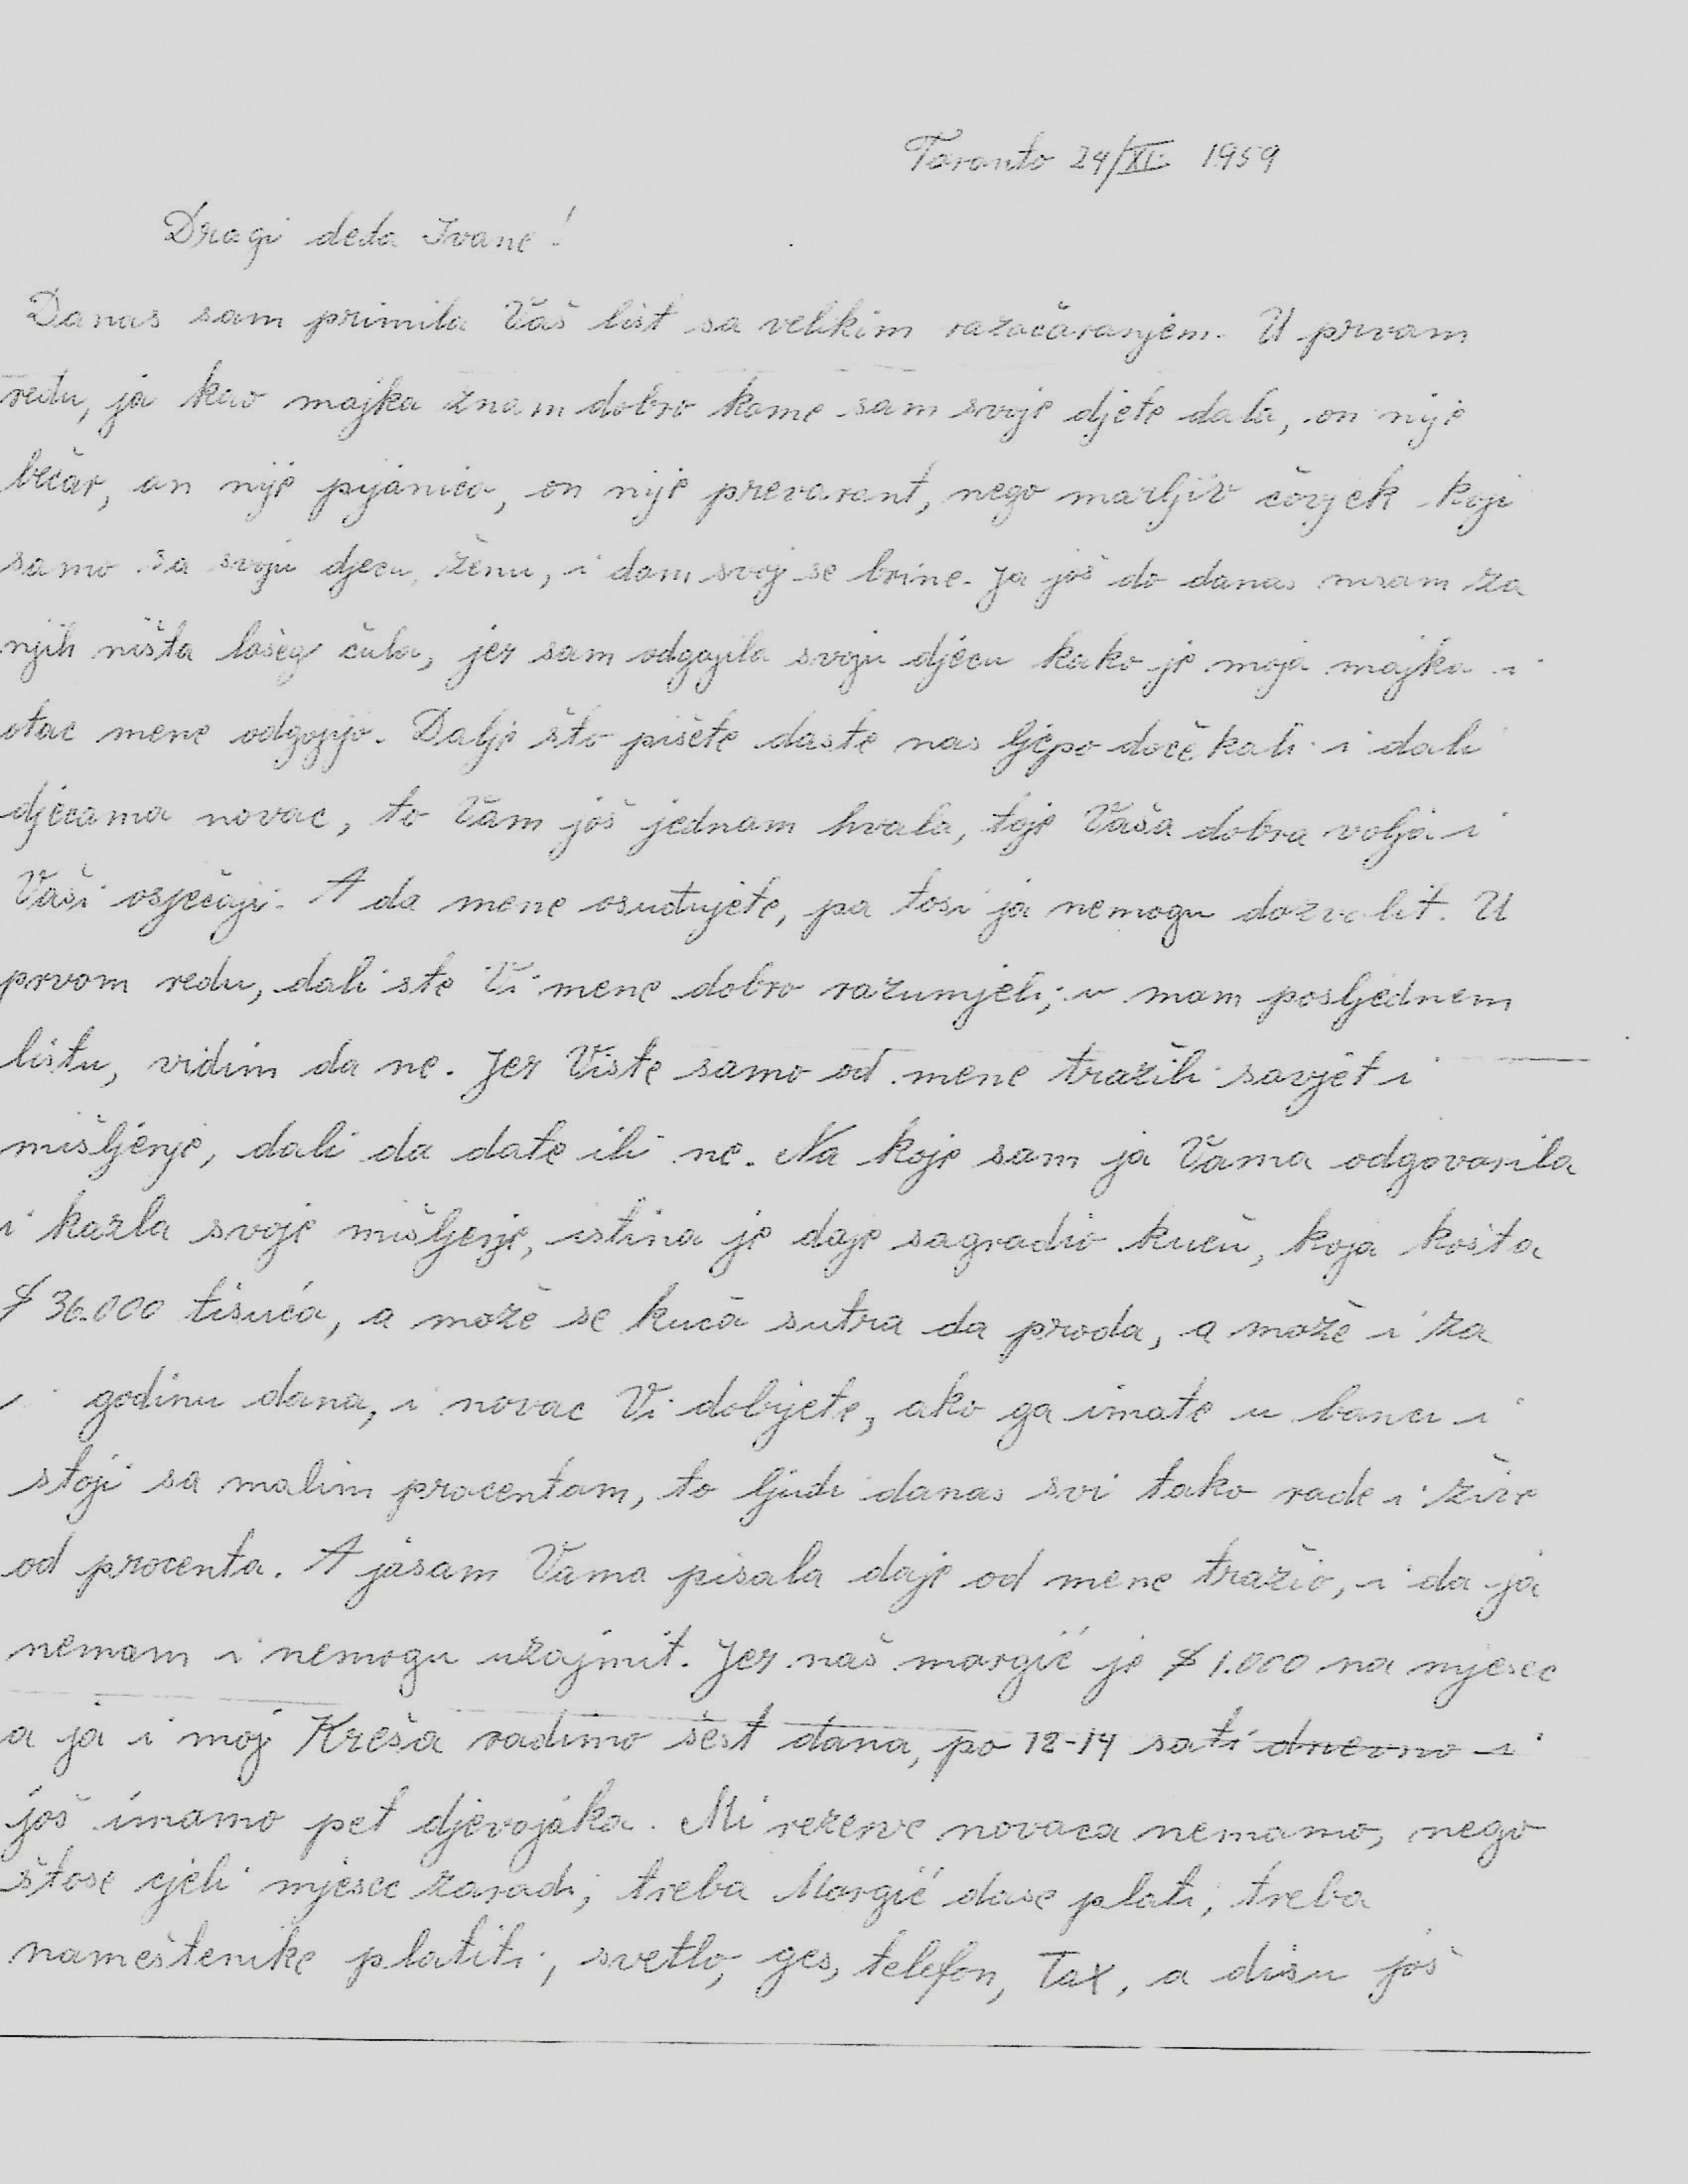 Toronto 24/XI. 1959
Dragi deda Ivane!
Danas sam primila Vaš list sa velikim razočaranjem. U prvom
redu, ja kao majka znam dobro kome sam svoje djete dala, on nije
bečar, on nije pijanica, on nije prevarant, nego marljiv čovjek koji
samo za svoju djecu, ženu, i dom svoj se brine. Ja još do danas nisam za
njih ništa lošeg čula, jer sam odgojila svoju djecu kako je moja majka i
otac mene odgojijo. Dalje što pišete daste nas ljepo dočekali i dali
djecama novac, to Vam još jednom hvala, toje Vaša dobra volja i
Vaši osječaji. A da mene osuđujete, pa tosi ja nemogu dozvolit. U
prvom redu, dali ste Vi mene dobro razumjeli; u mom posljednem
listu, vidim da ne. Jer Viste samo od mene tražili savjet i
mišljenje, dali da date ili ne. Na koje sam ja Vama odgovorila
i kazla svoje mišljenje, istina je daje sagradio kuču, koja košta
$ 36.000 tisuća, a može se kuča sutra da proda, a može i za
i godinu dana, i novac Vi dobijete, ako ga imate u banci i
stoji sa malim procentom, to ljudi danas svi tako rade i žive
od procenta. A jasam Vama pisala daje od mene tražio, i da ja
nemam i nemogu uzajmit. Jer naš morgić je $ 1.000 na mjesec
a ja i moj Kreša radimo šest dana, po 12-14 sati dnevno i
još imamo pet djevojaka. Mi rezerve novaca nemamo, nego
štose cjeli mjesec zaradi; treba Morgić dase plati, treba
nameštenike platiti, svetlo, ges, telefon, Tax, a disu još